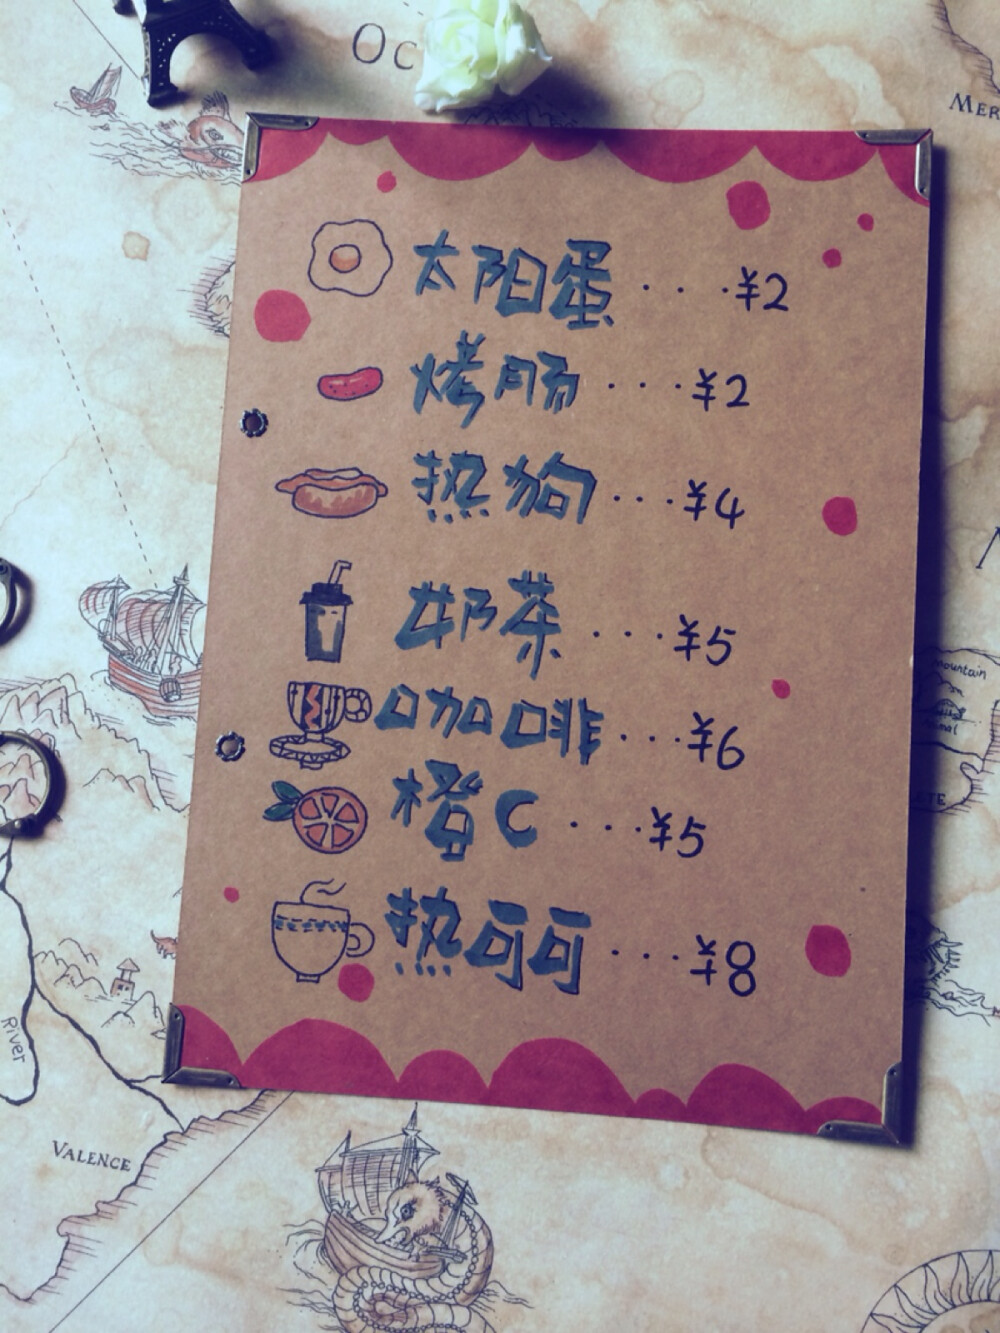 Oc
Mer
太阳蛋···¥2
烤肠···¥2
热狗···¥4
奶茶···¥5
咖啡···¥6
橙C···¥5
热可可···¥8
mountain
River
Valence